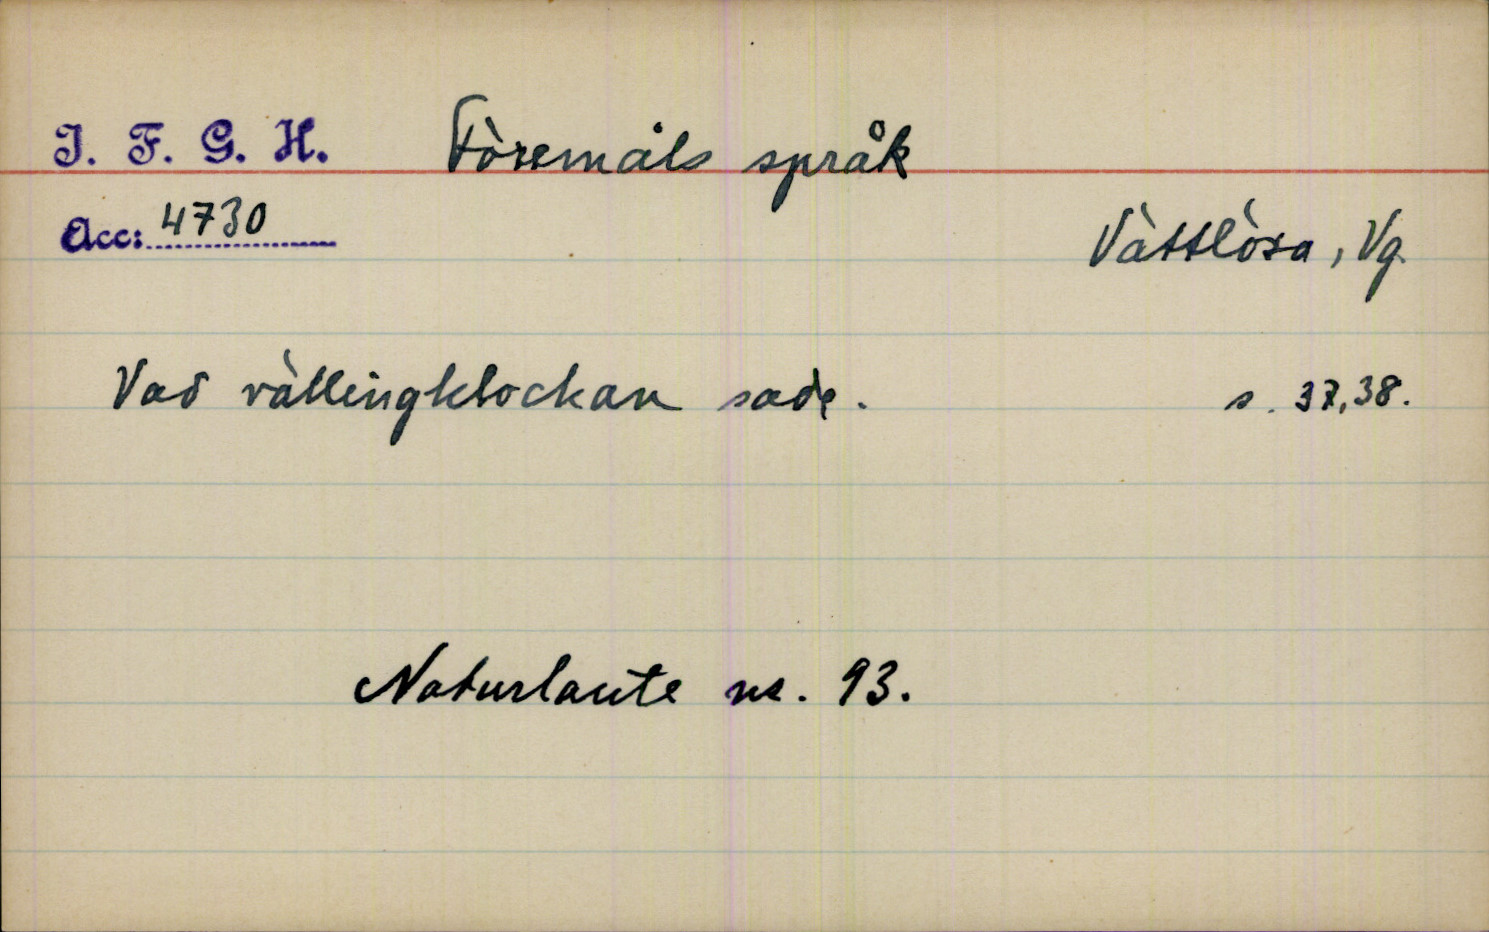 I. F. G. H. Föremåls språk
Acc: 4730
Vättlösa, Vg
Vad vällingklockan sade. s. 37,38.
Naturlaute nr. 93.